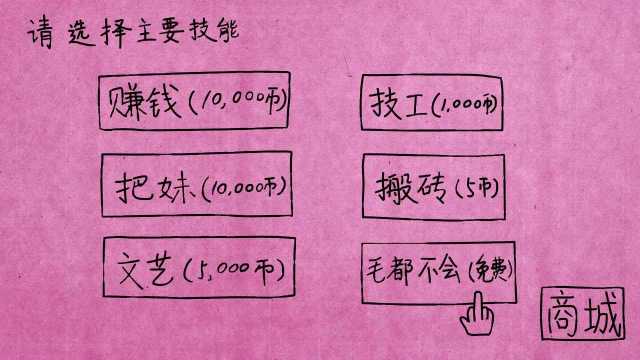 请选择主要技能
赚钱(10,000币)
技工(1,000币)
把妹(10,000币)
搬砖(5币)
文艺(5,000币)
毛都不会(免费)
商城